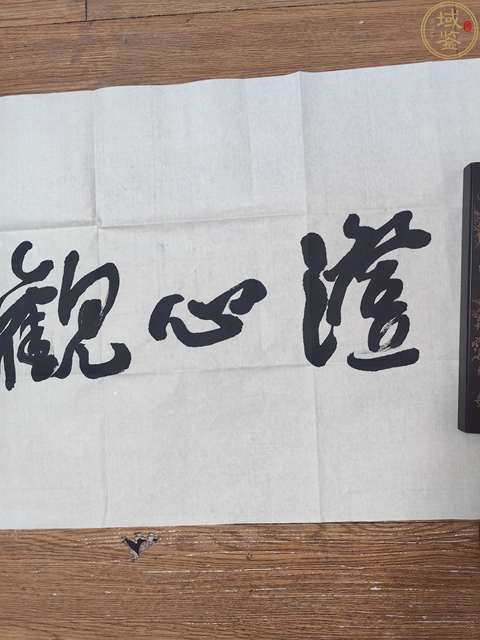 澄心觀
域鉴